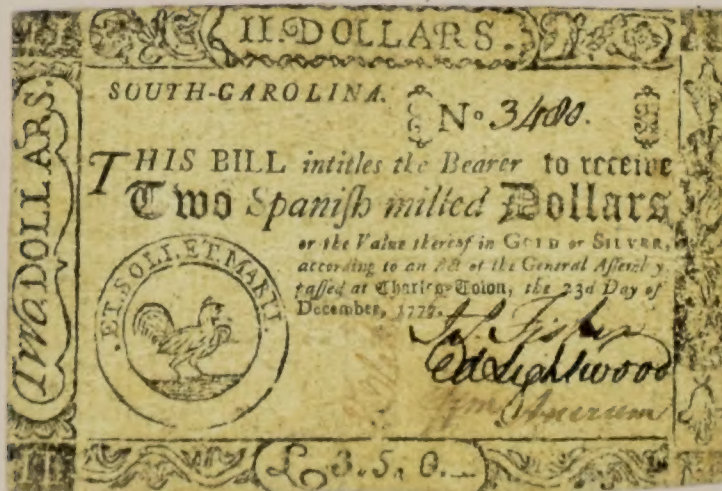 II. DOLLARS.
Two DOLLARS.
SOUTH-CAROLINA.
No. 3480.
THIS BILL intitles the Bearer to receive
Two Spaniſh milled Dollars
or the Value thereof in GOLD or SILVER,
according to an Act of the General Aſſembly
paſſed at Charles-Town, the 23d Day of
December, 1777.
.ET.SOLI.ET.MARTI.
Fisher
Ed Lightwood
£3.5.0.